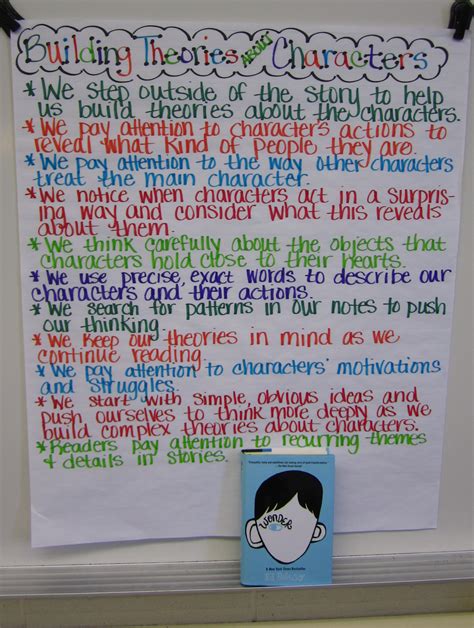 Building Theories ABOUT Characters
* We step outside of the story to help
us build theories about the characters.
* We pay attention to character's actions to
reveal what kind of people they are.
* We pay attention to the way other characters
treat the main character.
* We notice when characters act in a surpris-
ing way and consider what this reveals
about them.
* We think carefully about the objects that
characters hold close to their hearts.
* We use precise, exact words to describe our
characters and their actions.
* We search for patterns in our notes to push
our thinking.
* We keep our theories in mind as we
continue reading.
* We pay attention to characters' motivations
and struggles.
* We start with simple, obvious ideas and
push ourselves to think more deeply as we
build complex theories about characters.
* Readers pay attention to recurring themes
+ details in stories.
WONDER